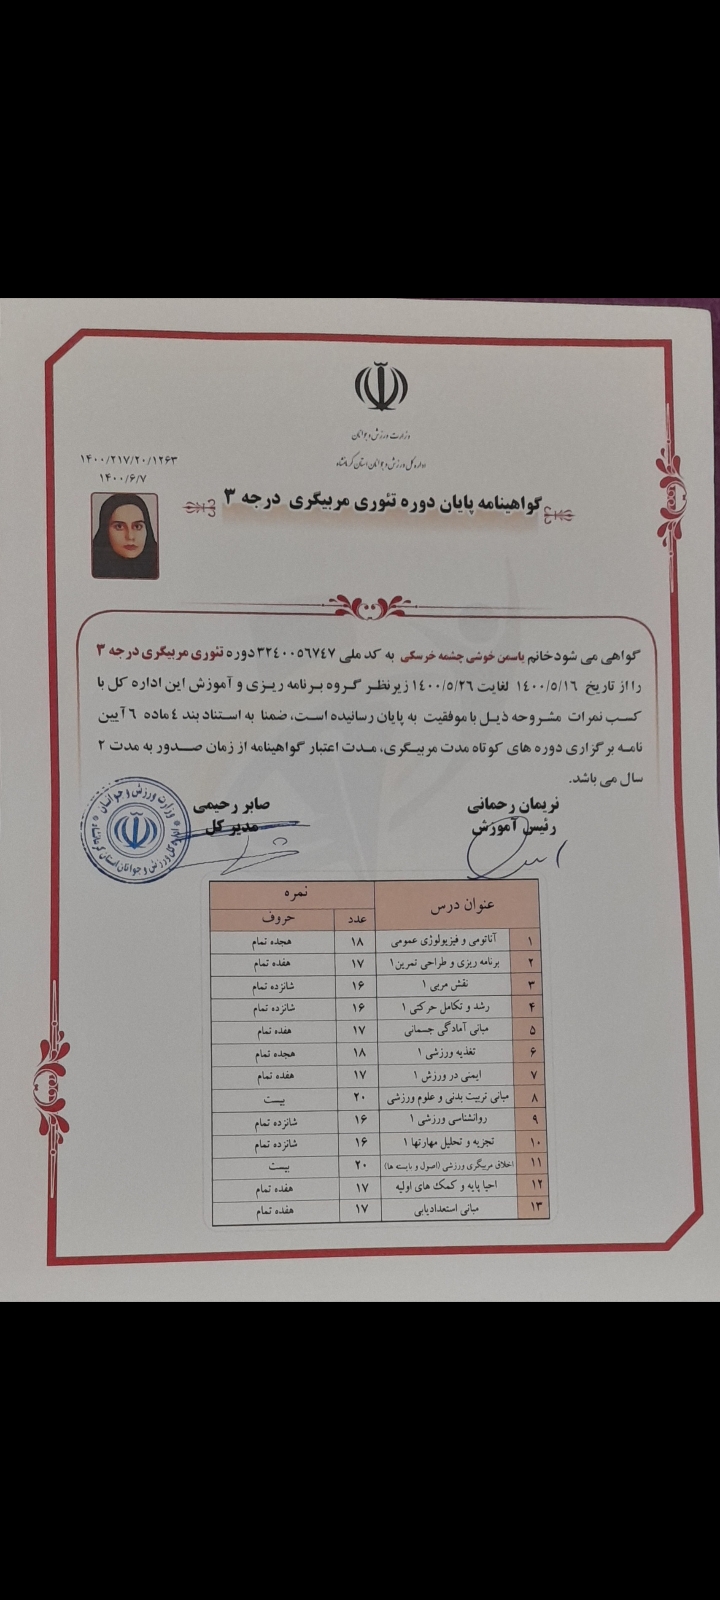 وزارت ورزش و جوانان
اداره کل ورزش و جوانان استان کرمانشاه
۱۴۰۰/۲۱۷/۲۰/۱۲۶۳
۱۴۰۰/۶/۷
گواهینامه پایان دوره تئوری مربیگری درجه ۳
گواهی می شود خانم یاسمن خوشی چشمه خرسکی به کد ملی ۳۲۴۰۰۵۶۷۴۷ دوره تئوری مربیگری درجه ۳
را از تاریخ ۱۴۰۰/۵/۱۶ لغایت ۱۴۰۰/۵/۲۶ زیرنظر گروه برنامه ریزی و آموزش این اداره کل با
کسب نمرات مشروحه ذیل با موفقیت به پایان رسانیده است، ضمنا به استناد بند ۴ ماده ۶ آیین
نامه برگزاری دوره های کوتاه مدت مربیگری، مدت اعتبار گواهینامه از زمان صدور به مدت ۲
سال می باشد.
نریمان رحمانی
رئیس آموزش
صابر رحیمی
مدیر کل
وزارت ورزش و جوانان
اداره کل ورزش و جوانان استان کرمانشاه
عنوان درس نمره
عدد حروف
۱ آناتومی و فیزیولوژی عمومی ۱۸ هجده تمام
۲ برنامه ریزی و طراحی تمرین ۱ ۱۷ هفده تمام
۳ نقش مربی ۱ ۱۶ شانزده تمام
۴ رشد و تکامل حرکتی ۱ ۱۶ شانزده تمام
۵ مبانی آمادگی جسمانی ۱۷ هفده تمام
۶ تغذیه ورزشی ۱ ۱۸ هجده تمام
۷ ایمنی در ورزش ۱ ۱۷ هفده تمام
۸ مبانی تربیت بدنی و علوم ورزشی ۲۰ بیست
۹ روانشناسی ورزشی ۱ ۱۶ شانزده تمام
۱۰ تجزیه و تحلیل مهارتها ۱ ۱۶ شانزده تمام
۱۱ اخلاق مربیگری ورزشی (اصول و بایسته ها) ۲۰ بیست
۱۲ احیا پایه و کمک های اولیه ۱۷ هفده تمام
۱۳ مبانی استعدادیابی ۱۷ هفده تمام